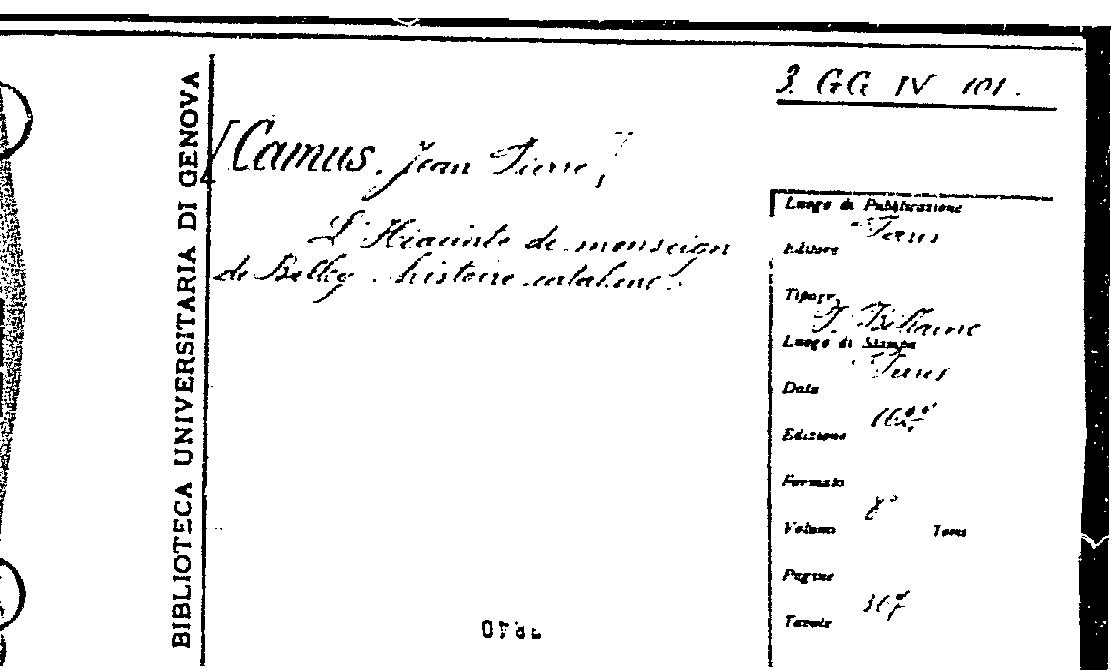 BIBLIOTECA UNIVERSITARIA DI GENOVA
3. GG IV 101.
[Camus, Jean Pierre]
L'Hiacinte de monseign
de Belley histoire catalane.
Luogo di Pubblicazione
Paris
Editore
Tipogr.
Luogo di Stampa
Paris
Data
Edizione
Formato
8°
Volume Tomi
Pagine
Tavole